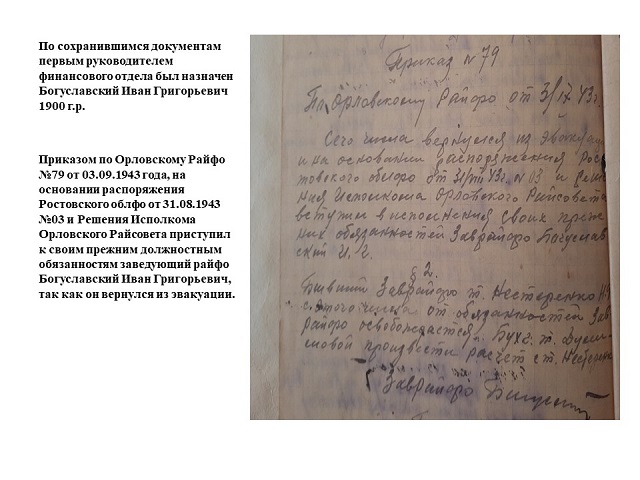 По сохранившимся документам
первым руководителем
финансового отдела был назначен
Богуславский Иван Григорьевич
1900 г.р.
Приказом по Орловскому Райфо
№79 от 03.09.1943 года, на
основании распоряжения
Ростовского облфо от 31.08.1943
№03 и Решения Исполкома
Орловского Райсовета приступил
к своим прежним должностным
обязанностям заведующий райфо
Богуславский Иван Григорьевич,
так как он вернулся из эвакуации.
Приказ N 79
По Орловскому Райфо от 3/IX 43г.
Сего числа вернулся из эвакуац
и на основании распоряжения Рос
товского облфо от 31/VIII 43г. N 03 и реше
ния Исполкома Орловского Райсовета
вступил в исполнения своих преж
них обязанностей Заврайфо Богуслав
ский И. Г.
§ 2.
Бывший Заврайфо т. Нестеренко
с этого числа от обязанностей Зав
Райфо освобождается. Бухг. т.
произвести расчет с т. Нестерен
Заврайфо